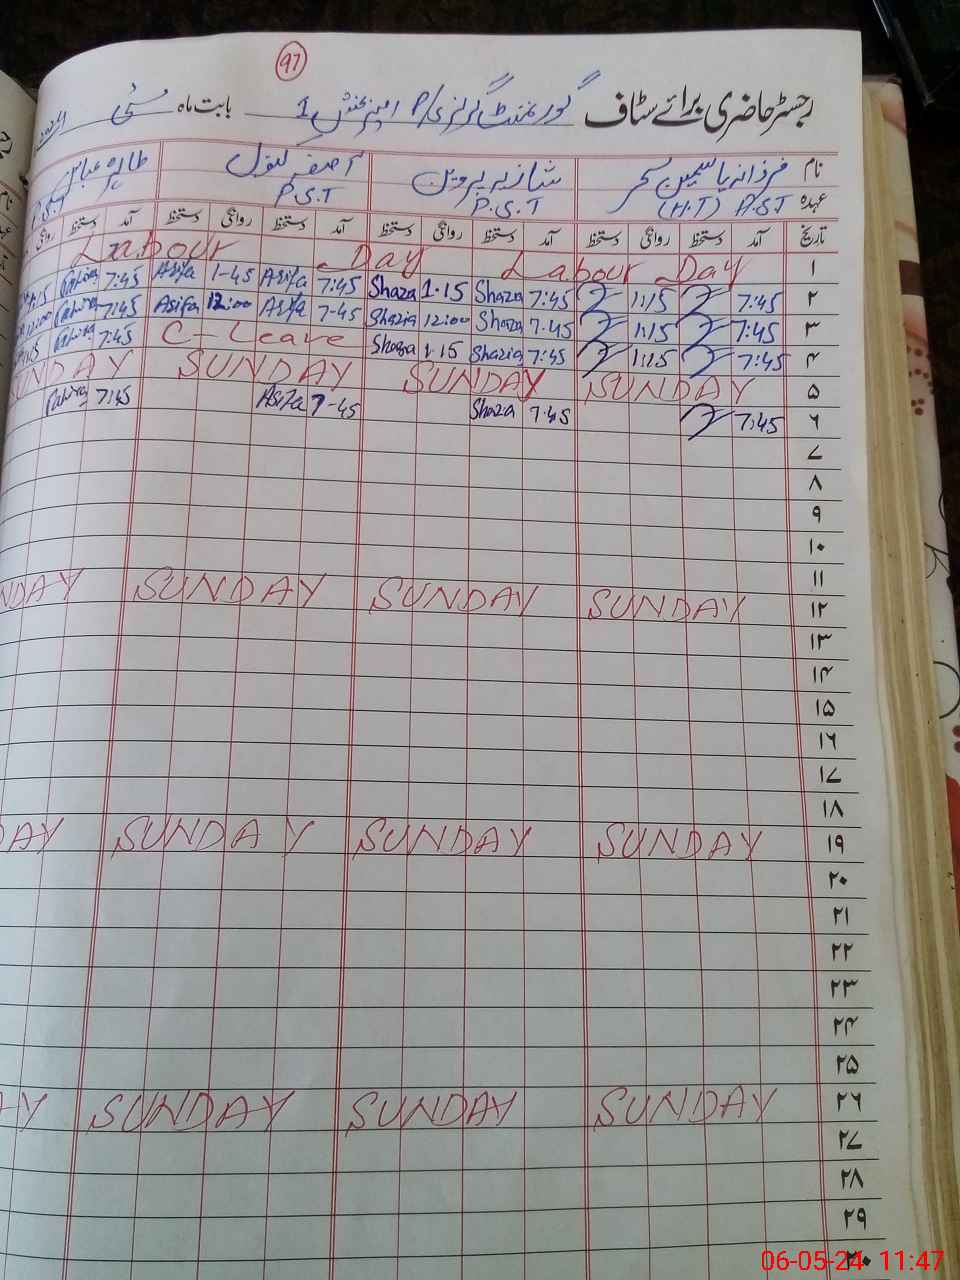 97
رجسٹر حاضری برائے سٹاف گورنمنٹ گرلز P/ 1 بابت ماہ مئی
نام فرزانہ یاسمین سحر شازیہ پروین آصفہ بتول طاہرہ عباس
عہدہ P.S.T (H.T) P.S.T P.S.T
تاریخ آمد دستخط روانگی دستخط آمد دستخط روانگی دستخط آمد دستخط روانگی دستخط آمد دستخط روانگی
۱ Labour Day Labour Day
۲ 7:45 1:15 7:45 Shazia 1.15 Shaza 7:45 Asifa 1-45 Asifa 7:45
۳ 7:45 1:15 7.45 Shaza 12:00 Shazia 7-45 Asifa 12:00 Asifa 7:45 12:00
۴ 7:45 1:15 7:45 Shazia 1.15 Shaza C-Leave 7:45
۵ SUNDAY SUNDAY SUNDAY SUNDAY
۶ 7:45 7.45 Shaza 7-45 Asifa 7:45
۷
۸
۹
۱۰
۱۱
۱۲ SUNDAY SUNDAY SUNDAY NDAY
۱۳
۱۴
۱۵
۱۶
۱۷
۱۸
۱۹ SUNDAY SUNDAY SUNDAY DAY
۲۰
۲۱
۲۲
۲۳
۲۴
۲۵
۲۶ SUNDAY SUNDAY SUNDAY AY
۲۷
۲۸
۲۹
۳۰
06-05-24 11:47